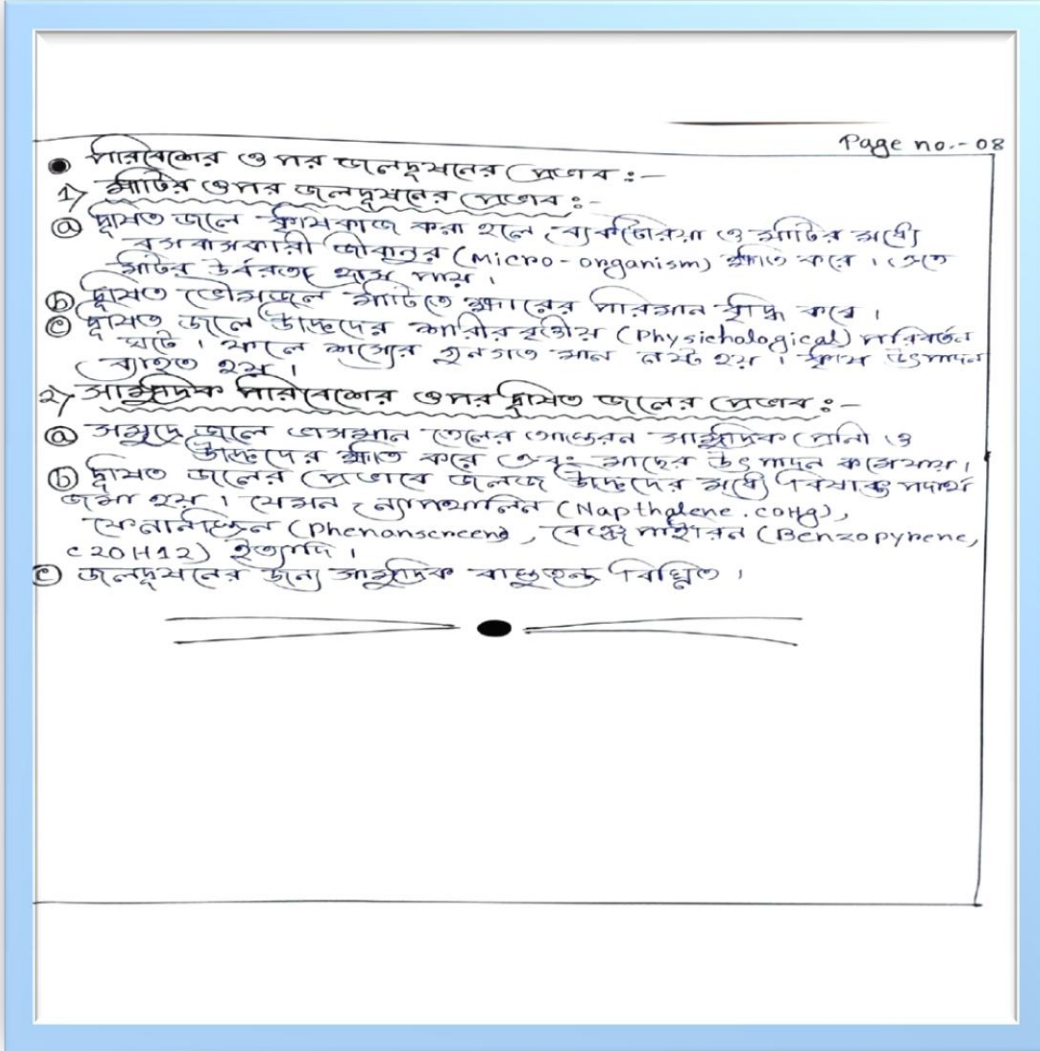 Page no.- 08
● পরিবেশের ওপর জলদূষনের প্রভাব :-
1) মাটির ওপর জলদূষনের প্রভাব :-
ⓐ দূষিত জলে কৃষিকাজ করা হলে ব্যাকটেরিয়া ও মাটির মধ্যে
বসবাসকারী জীবানুর (Micro-organism) ক্ষতি করে। এতে
মাটির উর্বরতা হ্রাস পায়।
ⓑ দূষিত ভৌমজল মাটিতে ক্ষারের পরিমান বৃদ্ধি করে।
ⓒ দূষিত জলে উদ্ভিদের শারীরবৃত্তীয় (Physichological) পরিবর্তন
ঘটে। ফলে শস্যের গুনগত মান নষ্ট হয়। কৃষি উৎপাদন
ব্যাহত হয়।
২) সামুদ্রিক পরিবেশের ওপর দূষিত জলের প্রভাব :-
ⓐ সমুদ্রে জলে ভাসমান তেলের আস্তরন সামুদ্রিক প্রানী ও
উদ্ভিদের ক্ষতি করে এবং মাছের উৎপাদন কমে যায়।
ⓑ দূষিত জলের প্রভাবে জলজ উদ্ভিদের মধ্যে বিষাক্ত পদার্থ
জমা হয়। যেমন ন্যাপথালিন (Napthalene. COH8),
(Phenanscreene), বেঞ্জোপাইরিন (Benzopyrene,
C20H12) ইত্যাদি।
ⓒ জলদূষনের জন্য সামুদ্রিক বাস্তুতন্ত্র বিঘ্নিত।